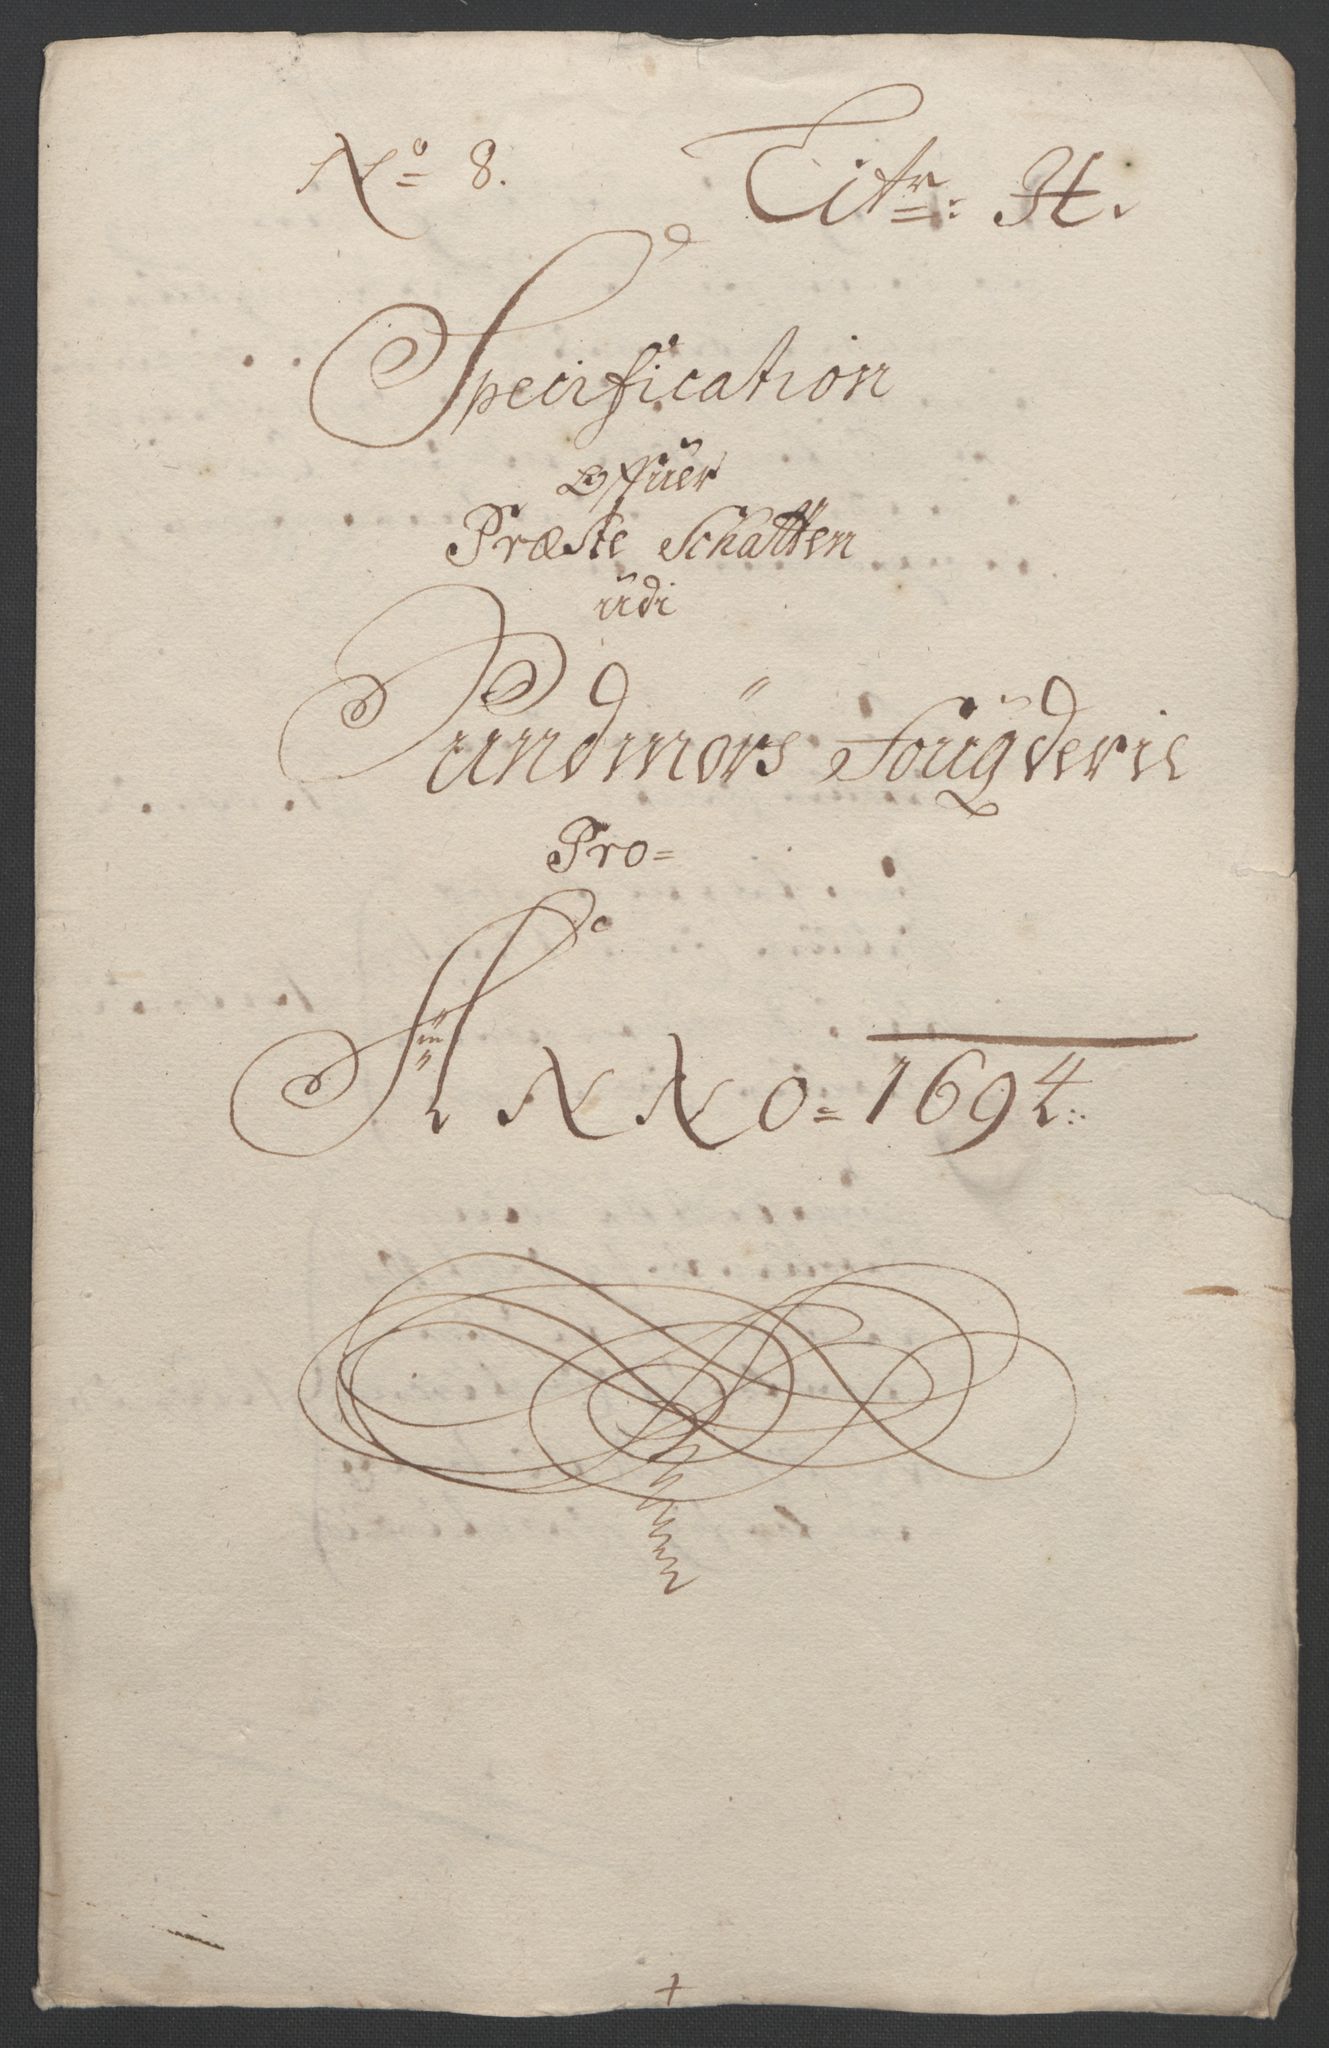 No 8. Litr: H.
Specification
Offuer
Præste Schatten
udi
Sundmörs Fougderie
Pro=
ANNO=1694.